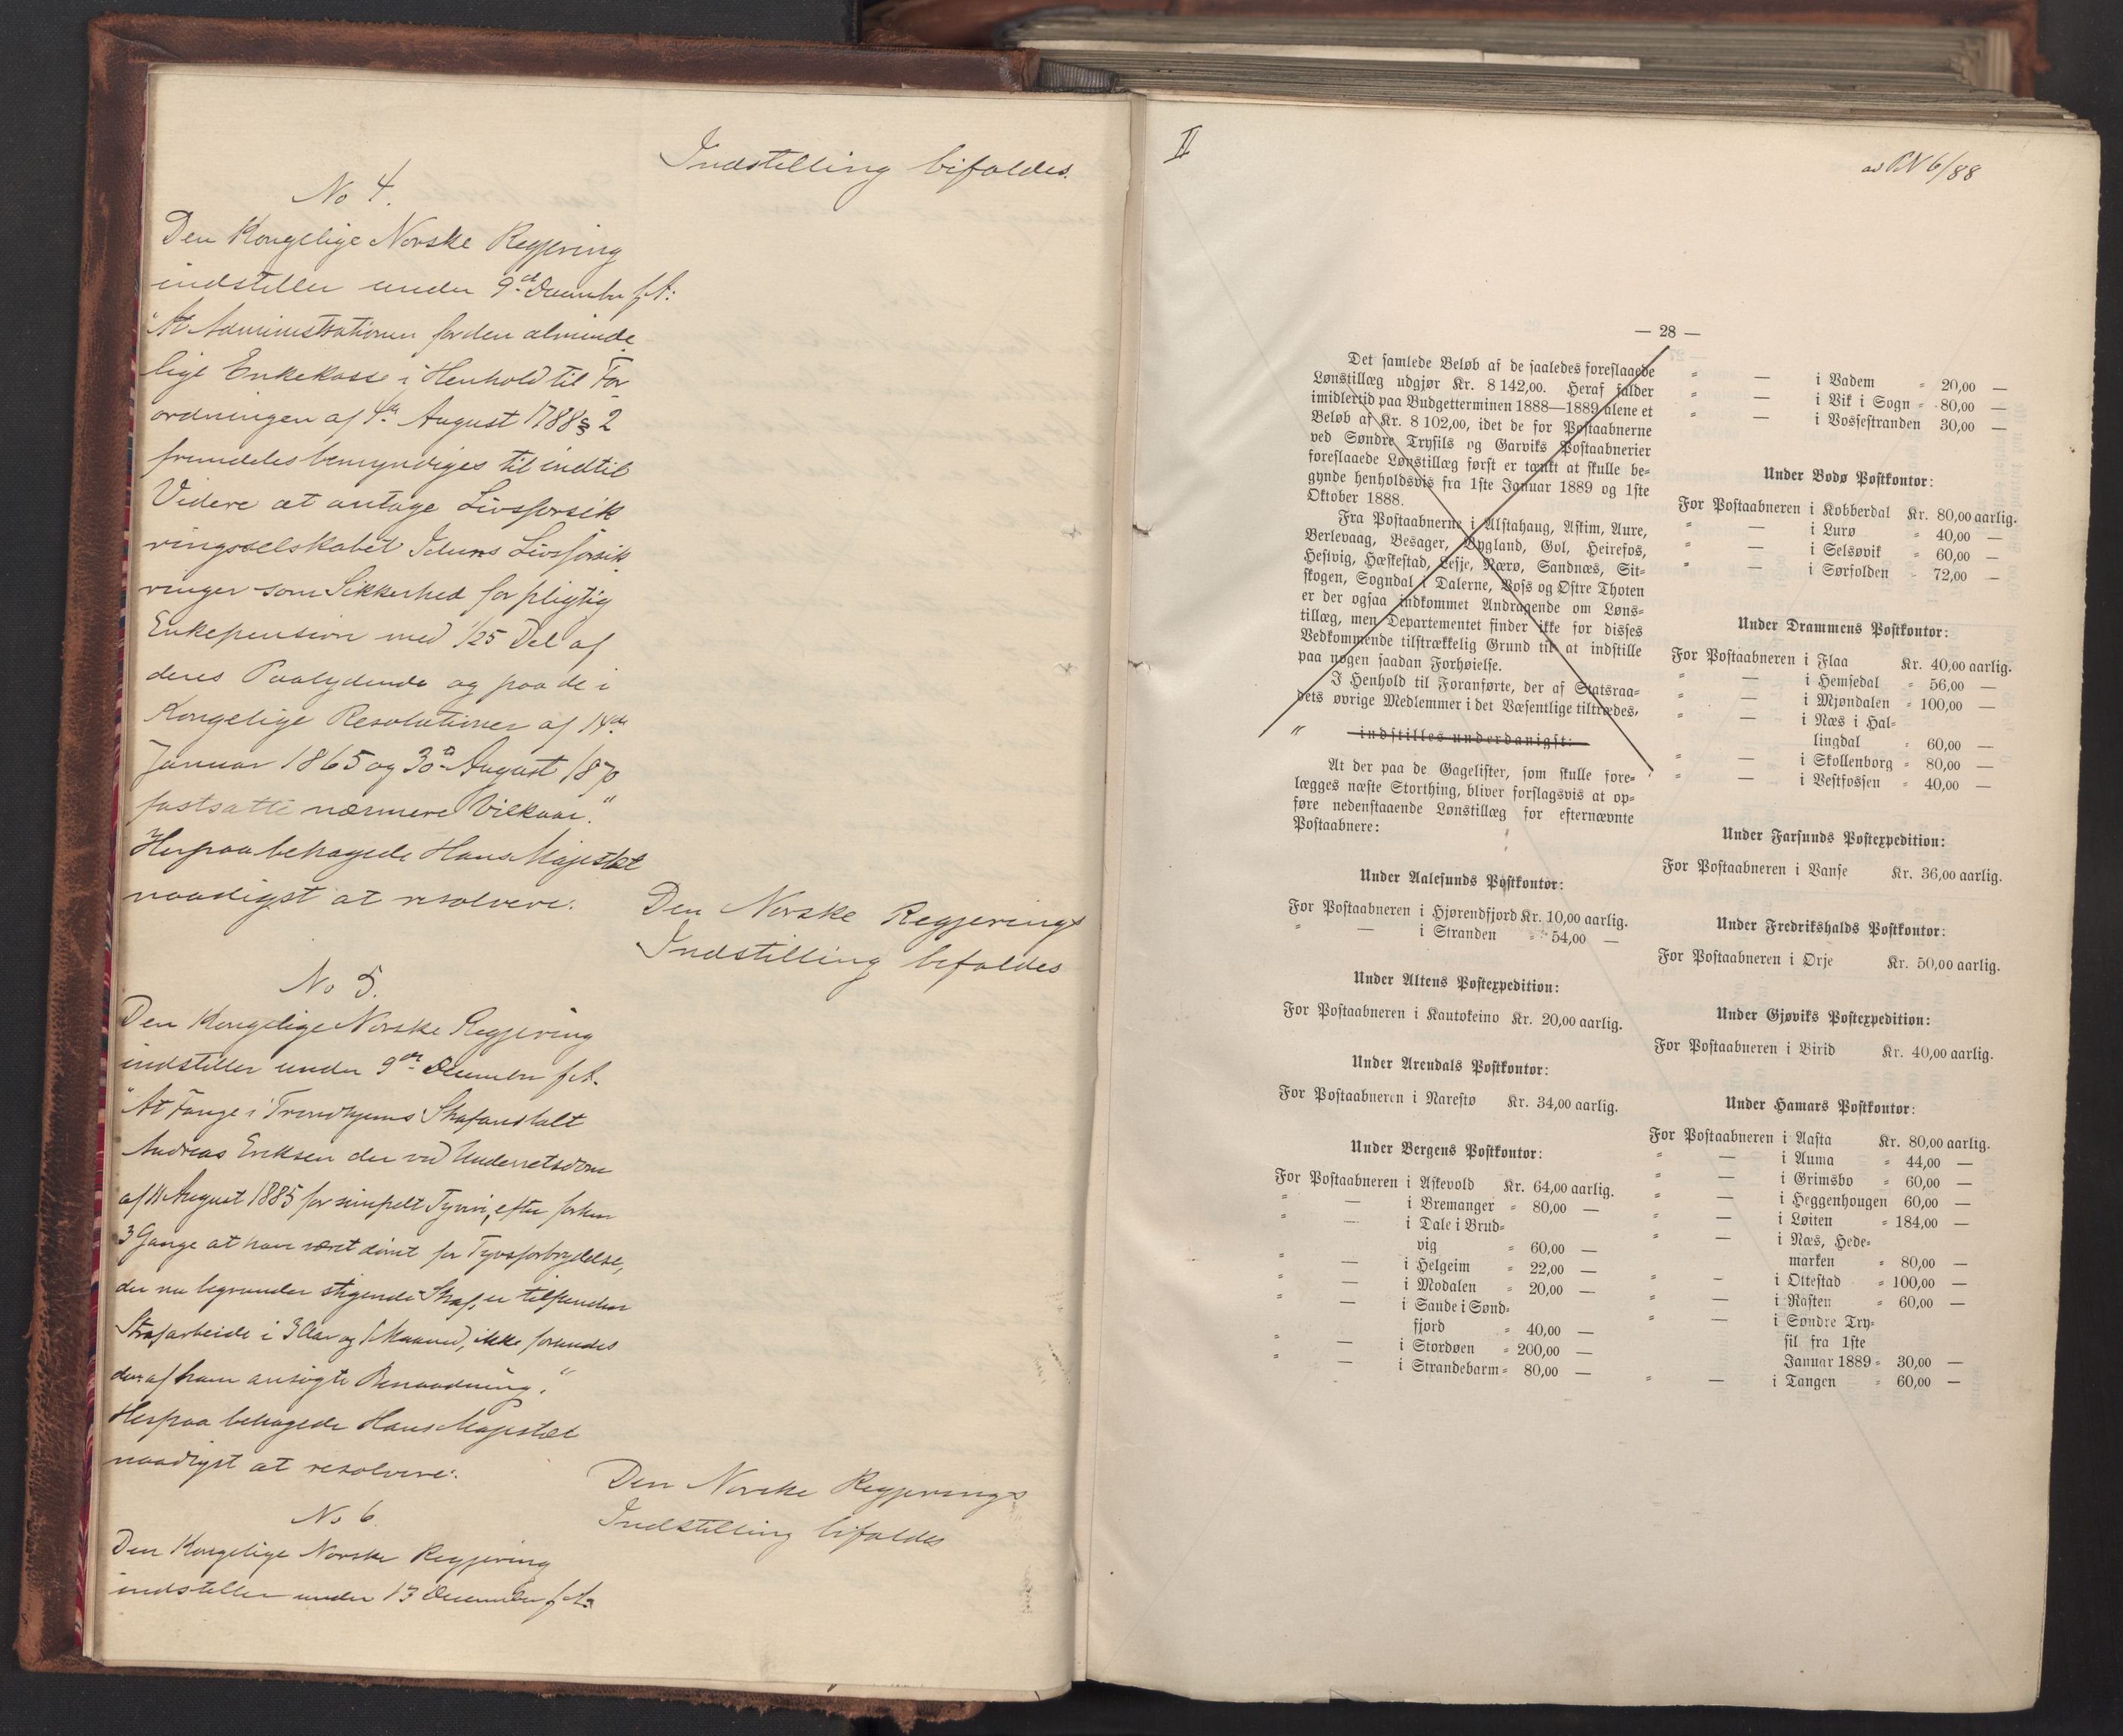 Indstilling bifaldes.
No 4.
Den Kongelige Norske Regjering
indstiller under 9de December f.A:
"At Administrationen for den alminde
lige Enkekasse i Henhold til For-
ordningen af 4de August 1788 § 2
fremdeles bemyndiges til indtil
Videre at antage Livsforsik
ringsselskabet Iduns Livsforsik
ringer som Sikkerhed for pligtig
Enkepension med 1/25 Del af
deres Paalydende og paa de i
Kongelige Resolutioner af 14de
Januar 1865 og 30te August 1870
fastsatte nærmere Vilkaar."
Herpaa behagede Hans Majestæt
naadigst at resolvere:
Den Norske Regjerings
Indstilling bifaldes
No 5.
Den Kongelige Norske Regjering
indstiller under 9de December f.A.
"At Fange i Trondhjems Strafanstalt
Andreas Eriksen der ved Underretsdom
af 11 August 1885 for simpelt Tyveri, efter forhen
3 Gange at have været dømt for Tyvsforbrydelse,
der nu begrunder stigende Straf, er tilfunden
Strafarbeide i 3 Aar og 1 Maaned, ikke forundes
den af ham ansøgte Benaadning."
Herpaa behagede Hans Majestæt
naadigst at resolvere:
Den Norske Regjerings
Indstilling bifaldes
No 6.
Den Kongelige Norske Regjering
indstiller under 13 December f.A.
II
ad PN 6/88
— 28 —
Det samlede Beløb af de saaledes foreslaaede
Lønstillæg udgjør Kr. 8 142,00. Heraf falder
imidlertid paa Budgetterminen 1888—1889 alene et
Beløb af Kr. 8 102,00, idet de for Postaabnerne
ved Søndre Trysils og Garviks Postaabnerier
foreslaaede Lønstillæg først er tænkt at skulle be-
gynde henholdsvis fra 1ste Januar 1889 og 1ste
Oktober 1888.
Fra Postaabnerne i Alstahaug, Askim, Aure,
Berlevaag, Besager, Bygland, Gol, Heirefos,
Hestvig, Hæskestad, Lesje, Nærø, Sandnæs, Sit-
skogen, Sogndal i Dalerne, Voss og Østre Thoten
er der ogsaa indkommet Andragende om Løns-
tillæg, men Departementet finder ikke for disses
Vedkommende tilstrækkelig Grund til at indstille
paa nogen saadan Forhøielse.
I Henhold til Foranførte, der af Statsraa-
dets øvrige Medlemmer i det Væsentlige tiltrædes,
" indstilles underdanigst:
At der paa de Gagelister, som skulle fore-
lægges næste Storthing, bliver forslagsvis at op-
føre nedenstaaende Lønstillæg for efternævnte
Postaabnere:
Under Aalesunds Postkontor:
For Postaabneren i Hjørendfjord Kr. 10,00 aarlig.
" — i Stranden " 54,00 —
Under Altens Postexpedition:
For Postaabneren i Kautokeino Kr. 20,00 aarlig.
Under Arendals Postkontor:
For Postaabneren i Narestø Kr. 34,00 aarlig.
Under Bergens Postkontor:
For Postaabneren i Askevold Kr. 64,00 aarlig.
" — i Bremanger " 80,00 —
" — i Dale i Brud-
vig " 60,00 —
" — i Helgeim " 22,00 —
" — i Modalen " 20,00 —
" — i Sande i Sønd-
fjord " 40,00 —
" — i Stordøen " 200,00 —
" — i Strandebarm " 80,00 —
" — i Vadem " 20,00 —
" — i Vik i Sogn " 80,00 —
" — i Vossestranden 30,00 —
Under Bodø Postkontor:
For Postaabneren i Kobberdal Kr. 80,00 aarlig.
" — i Lurø " 40,00 —
" — i Selsøvik " 60,00 —
" — i Sørfolden " 72,00 —
Under Drammens Postkontor:
For Postaabneren i Flaa Kr. 40,00 aarlig.
" — i Hemsedal " 56,00 —
" — i Mjøndalen " 100,00 —
" — i Næs i Hal-
lingdal " 60,00 —
" — i Skollenborg " 80,00 —
" — i Vestfossen " 40,00 —
Under Farsunds Postexpedition:
For Postaabneren i Vanse Kr. 36,00 aarlig.
Under Fredrikshalds Postkontor:
For Postaabneren i Ørje Kr. 50,00 aarlig.
Under Gjøviks Postexpedition:
For Postaabneren i Birid Kr. 40,00 aarlig.
Under Hamars Postkontor:
For Postaabneren i Aasta Kr. 80,00 aarlig.
" — i Auma " 44,00 —
" — i Grimsbo " 60,00 —
" — i Heggenhougen 60,00 —
" — i Løiten " 184,00 —
" — i Næs, Hede-
marken " 80,00 —
" — i Oltestad " 100,00 —
" — i Rasten " 60,00 —
" — i Søndre Try-
sil fra 1ste
Januar 1889 " 30,00 —
" — i Tangen " 60,00 —